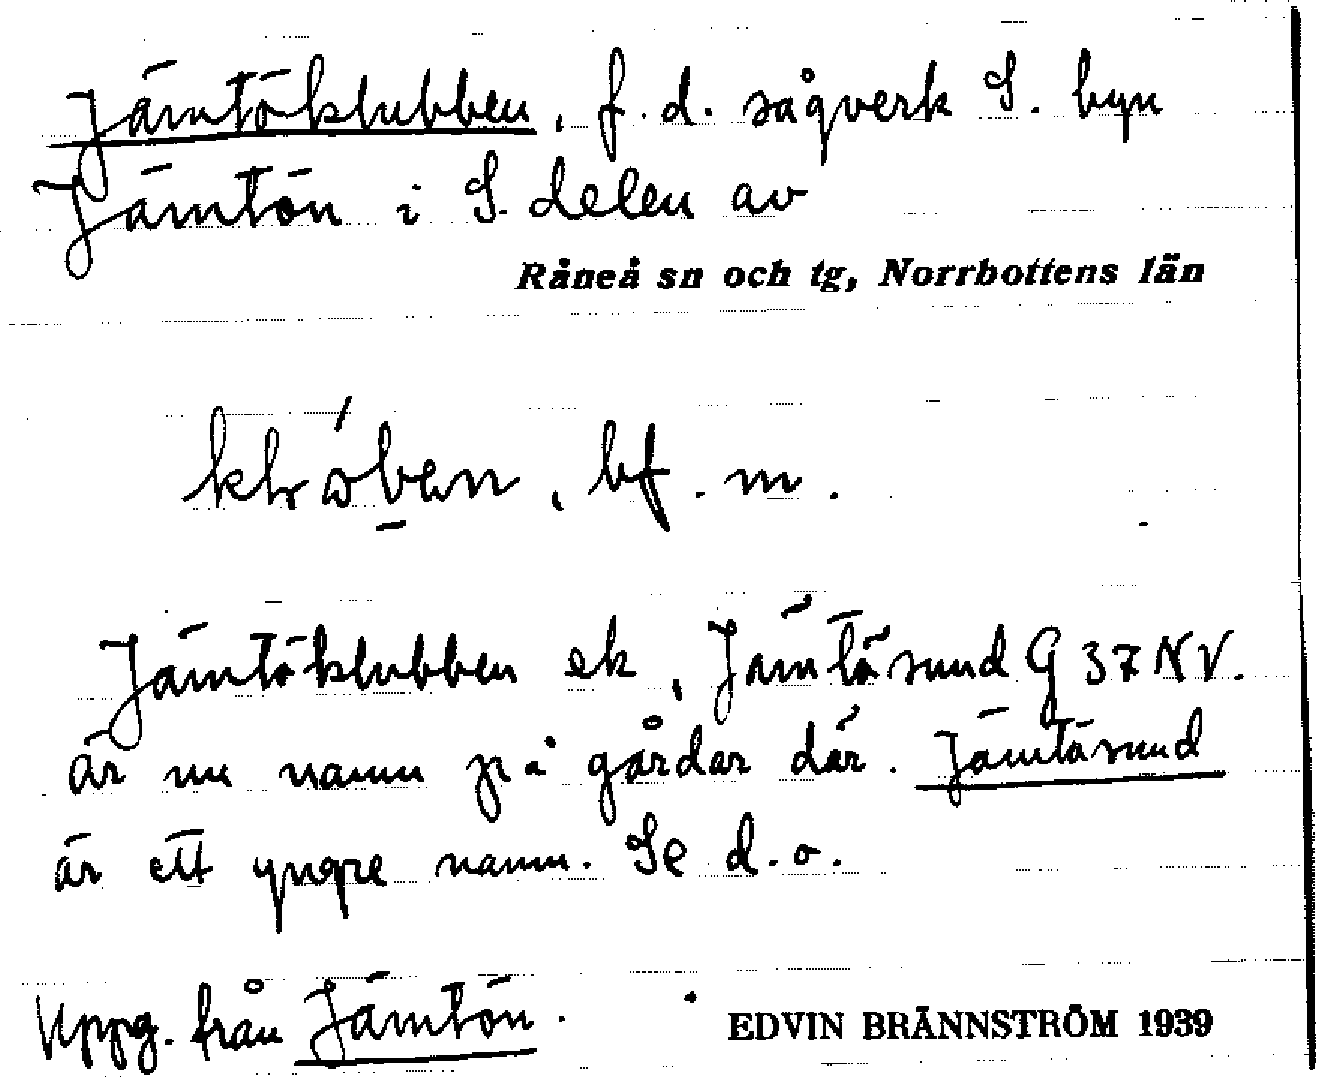 Jämtöklubben, f.d. sågverk S. byn
Jämtön i S. delen av
Råneå sn och tg, Norrbottens län
bf. m.
Jämtöklubben ek, Jämtösund G 37 NV.
är nu namn på gårdar där. Jämtösund
är ett yngre namn. Se d.o.
Uppg. från Jämtön.
EDVIN BRÄNNSTRÖM 1939